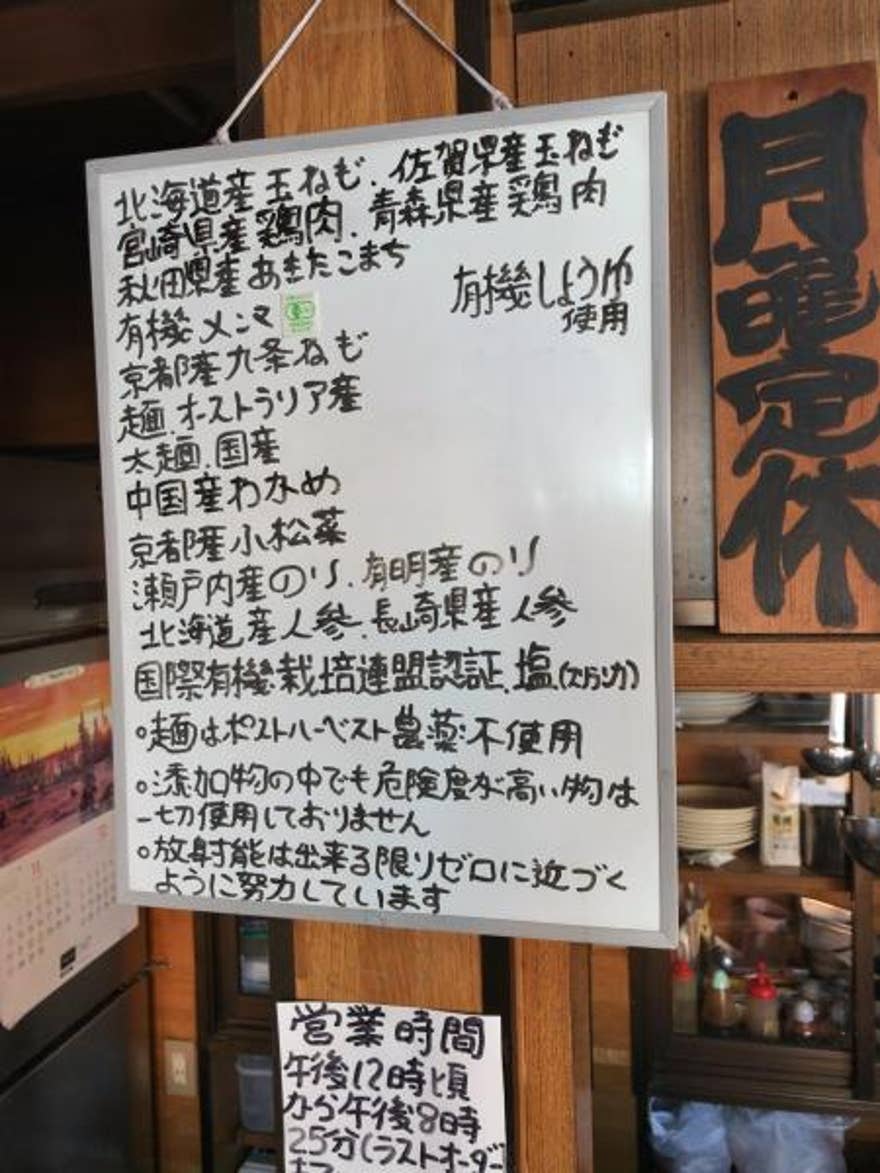 北海道産玉ねぎ、佐賀県産玉ねぎ
宮崎県産鶏肉、青森県産鶏肉
秋田県産あきたこまち
有機しょうゆ
使用
有機メンマ
京都産九条ねぎ
麺、オーストラリア産
太麺、国産
中国産わかめ
京都産小松菜
瀬戸内産のり、有明産のり
北海道産人参、長崎県産人参
国際有機栽培連盟認証、塩(スリランカ)
○麺はポストハーベスト農薬不使用
○添加物の中でも危険度が高い物は
一切使用しておりません
○放射能は出来る限りゼロに近づく
ように努力しています
月曜定休
営業時間
午後12時頃
から午後8時
25分(ラストオーダー
まで